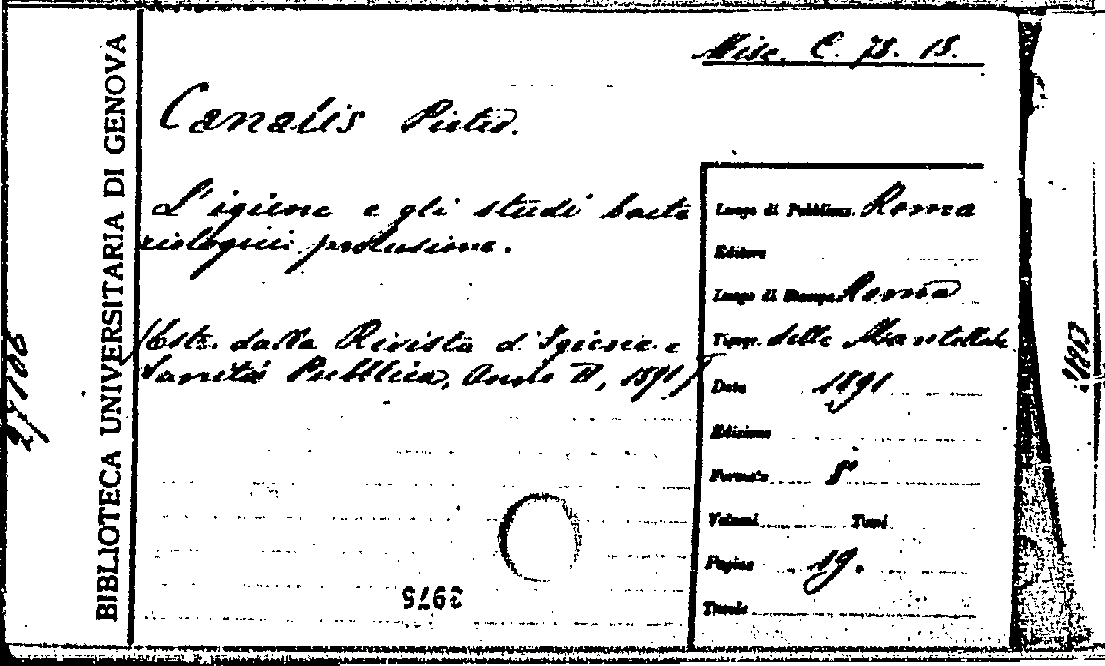 Misc. C. 78. 18.
Canalis Pietro.
L'igiene e gli studi batte
riologici: prolusione.
(Estr. dalla Rivista d'Igiene e
Sanità Pubblica, Anno II, 1891)
Luogo di Pubblicaz. Roma
Editore
Luogo di Stampa Roma
Tipogr. delle Mantellate
Data 1891
Edizione
Formato 8°
Volumi Tomi
Pagine 19.
Tavole
BIBLIOTECA UNIVERSITARIA DI GENOVA